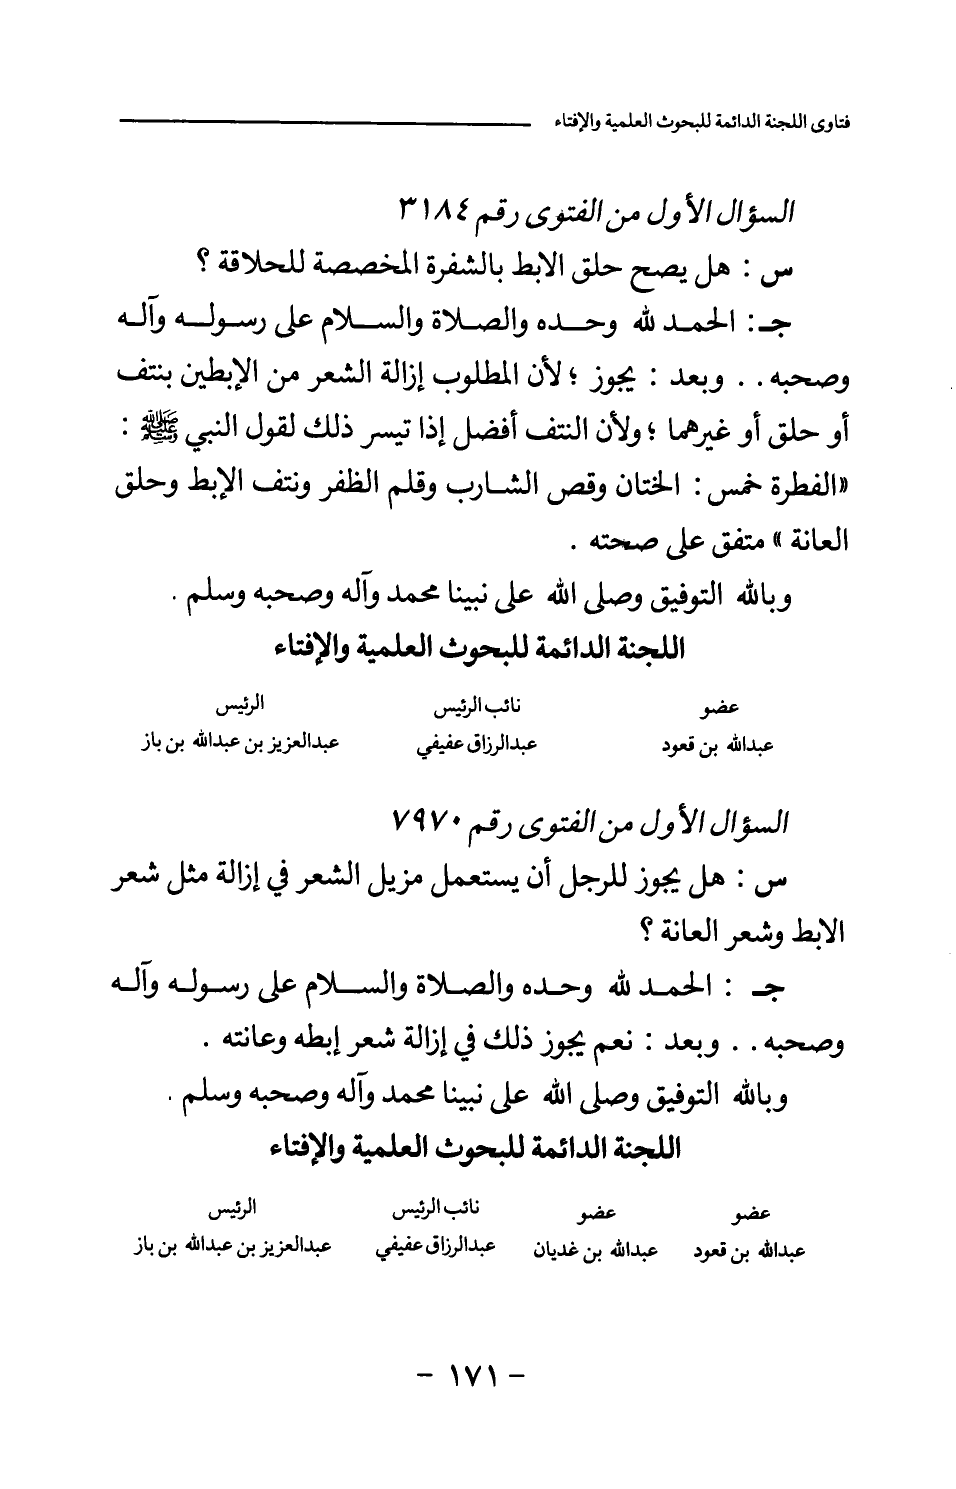 فتاوى اللجنة الدائمة للبحوث العلمية والإفتاء
السؤال الأول من الفتوى رقم ٣١٨٤
س : هل يصح حلق الابط بالشفرة المخصصة للحلاقة ؟
جـ : الحمد لله وحده والصلاة والسلام على رسوله وآله
وصحبه . . وبعد : يجوز ؛ لأن المطلوب إزالة الشعر من الإبطين بنتف
أو حلق أو غيرهما ؛ ولأن النتف أفضل إذا تيسر ذلك لقول النبي ﷺ :
«الفطرة خمس : الختان وقص الشارب وقلم الظفر ونتف الإبط وحلق
العانة » متفق على صحته .
وبالله التوفيق وصلى الله على نبينا محمد وآله وصحبه وسلم .
اللجنة الدائمة للبحوث العلمية والإفتاء
عضو نائب الرئيس الرئيس
عبدالله بن قعود عبدالرزاق عفيفي عبدالعزيز بن عبدالله بن باز
السؤال الأول من الفتوى رقم ٧٩٧٠
س : هل يجوز للرجل أن يستعمل مزيل الشعر في إزالة مثل شعر
الابط وشعر العانة ؟
جـ : الحمد لله وحده والصلاة والسلام على رسوله وآله
وصحبه . . وبعد : نعم يجوز ذلك في إزالة شعر إبطه وعانته .
وبالله التوفيق وصلى الله على نبينا محمد وآله وصحبه وسلم .
اللجنة الدائمة للبحوث العلمية والإفتاء
عضو عضو نائب الرئيس الرئيس
عبدالله بن قعود عبدالله بن غديان عبدالرزاق عفيفي عبدالعزيز بن عبدالله بن باز
- ١٧١ -